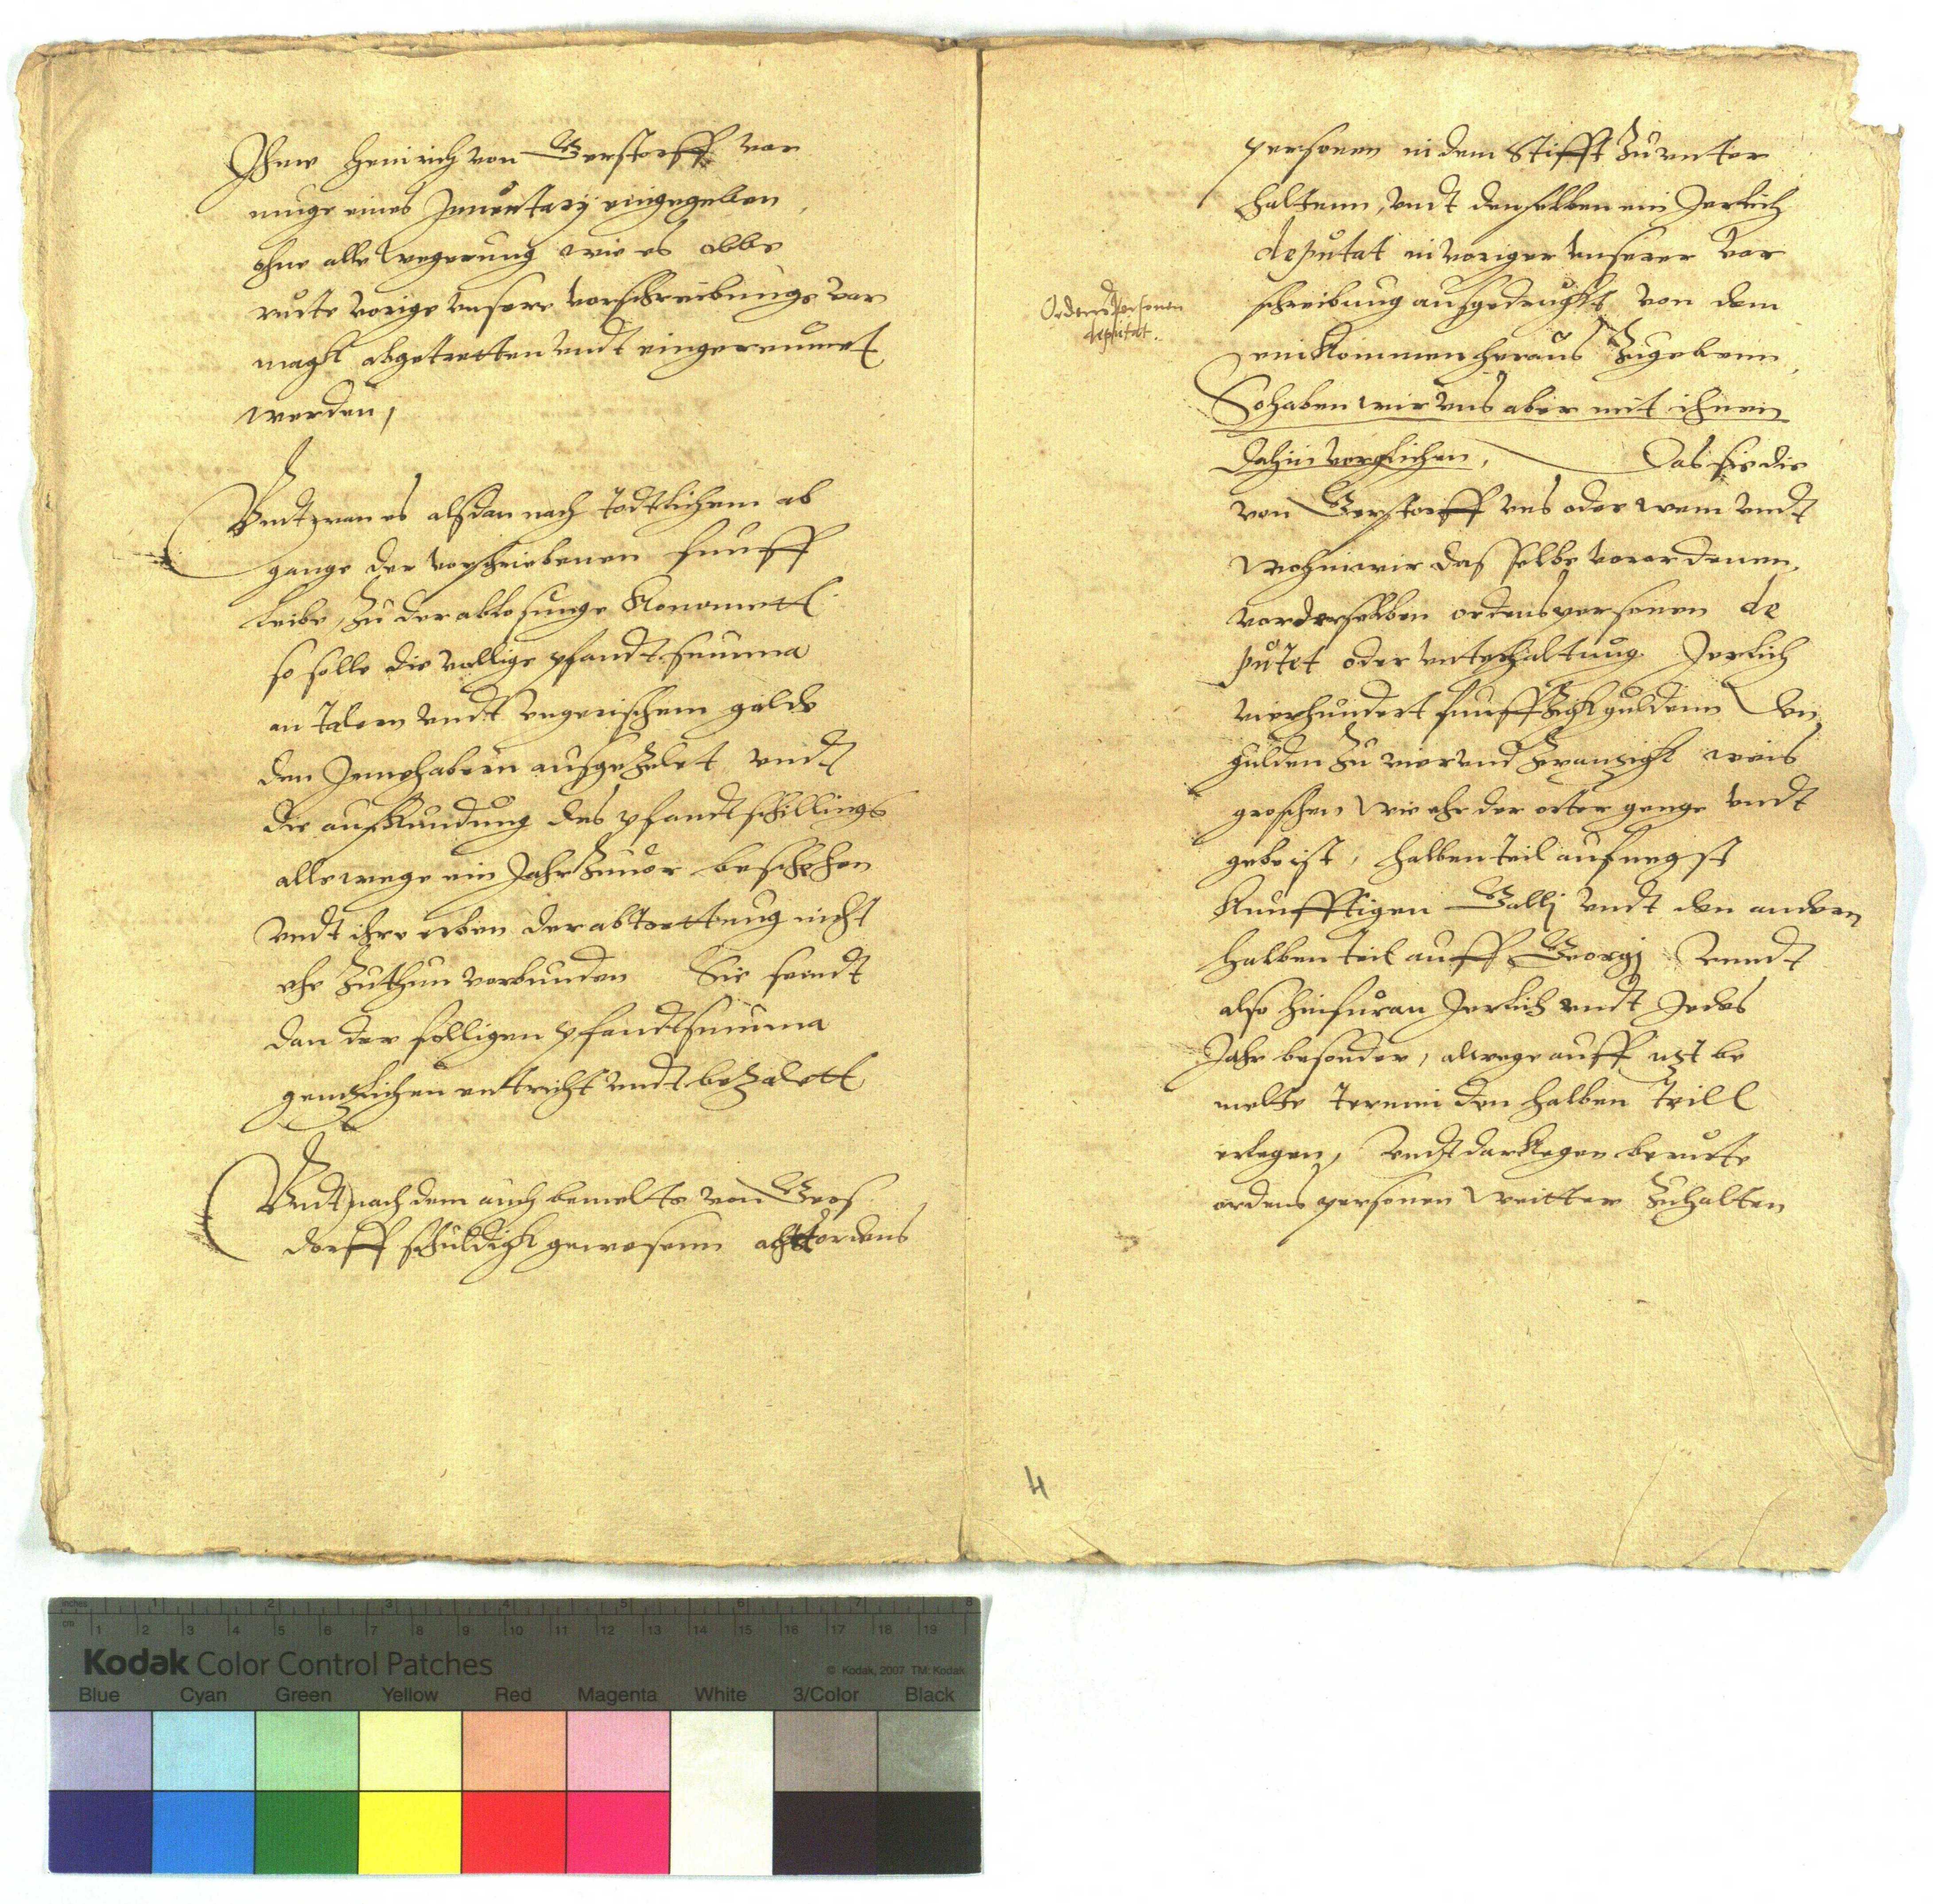 Ihme Heinrich von Gerstorff vor
muge eines Inuentarij eingegeben,
ohne alle wegerung wie es obbe
rurte vorige unsere vorschreibunge vor
magk abgetretten undt eingereumet
werden,
Undt wan es alsdan nach todtlichem ab
gange der vorschriebenen funff
leibe, zu der ablosunge
so solle die vollige pfandt summa
an talern undt ungerischem golde
den Innehabern ausgezelet undt
die aufkundung des pfandtschillings
allewege ein Jahr zuuor beschehen
undt ihre erben der abtrettung nicht
ehr zuthun vorbunden Sie seindt
dan der folligen pfandtsumma
gentzlichen entricht undt bezalett
Undt nach dem auch bemelte von Gers
dorff schuldigk gewesenn acht ordens
personen in dem Stifft zu unter
haltenn, undt denselben ein Jerlich
deputat in voriger unserer vor
schreibung ausgedruckt von dem
einkommen heraus zugebenn,
So haben wir uns aber mit ihnen
dahin vorglichen, Das sie die
von Gerstorff uns oder wem undt
wohin wir dasselbe vorordenen,
vor derselben ordenspersonen de
putet oder unterhaltung Jerlich
vierhundert funffzigk guldenn den
gulden zu vier und zwanzigk weis
groschen wie ehr der orter genge undt
gebe ist, halben teil auf negst
kunfftigen Gallj undt den andern
halben teil auff Georgj unndt
also hinfuran Jerlich undt Jedes
Jahr besonder, alwege auff itzt be
melte termin den halben teill
erlegen, undt darkegen berurte
ordens personen weitter zuhalten
Ordens personen
deputat.
4
Kodak Color Control Patches
© Kodak, 2007 TM: Kodak
inches 1 2 3 4 5 6 7 8
cm 1 2 3 4 5 6 7 8 9 10 11 12 13 14 15 16 17 18 19
Blue Cyan Green Yellow Red Magenta White 3/Color Black